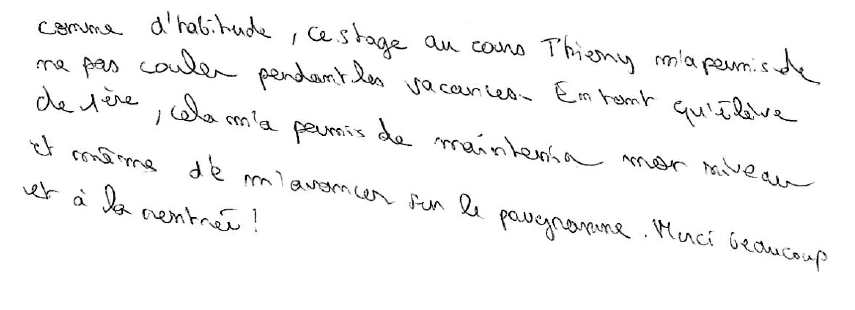 comme d'habitude, ce stage au cours Thierry m'a permis de
ne pas couler pendant les vacances. En tant qu'élève
de 1ère, cela m'a permis de maintenir mon niveau
et même de m'avancer sur le programme. Merci beaucoup
et à la rentrée !